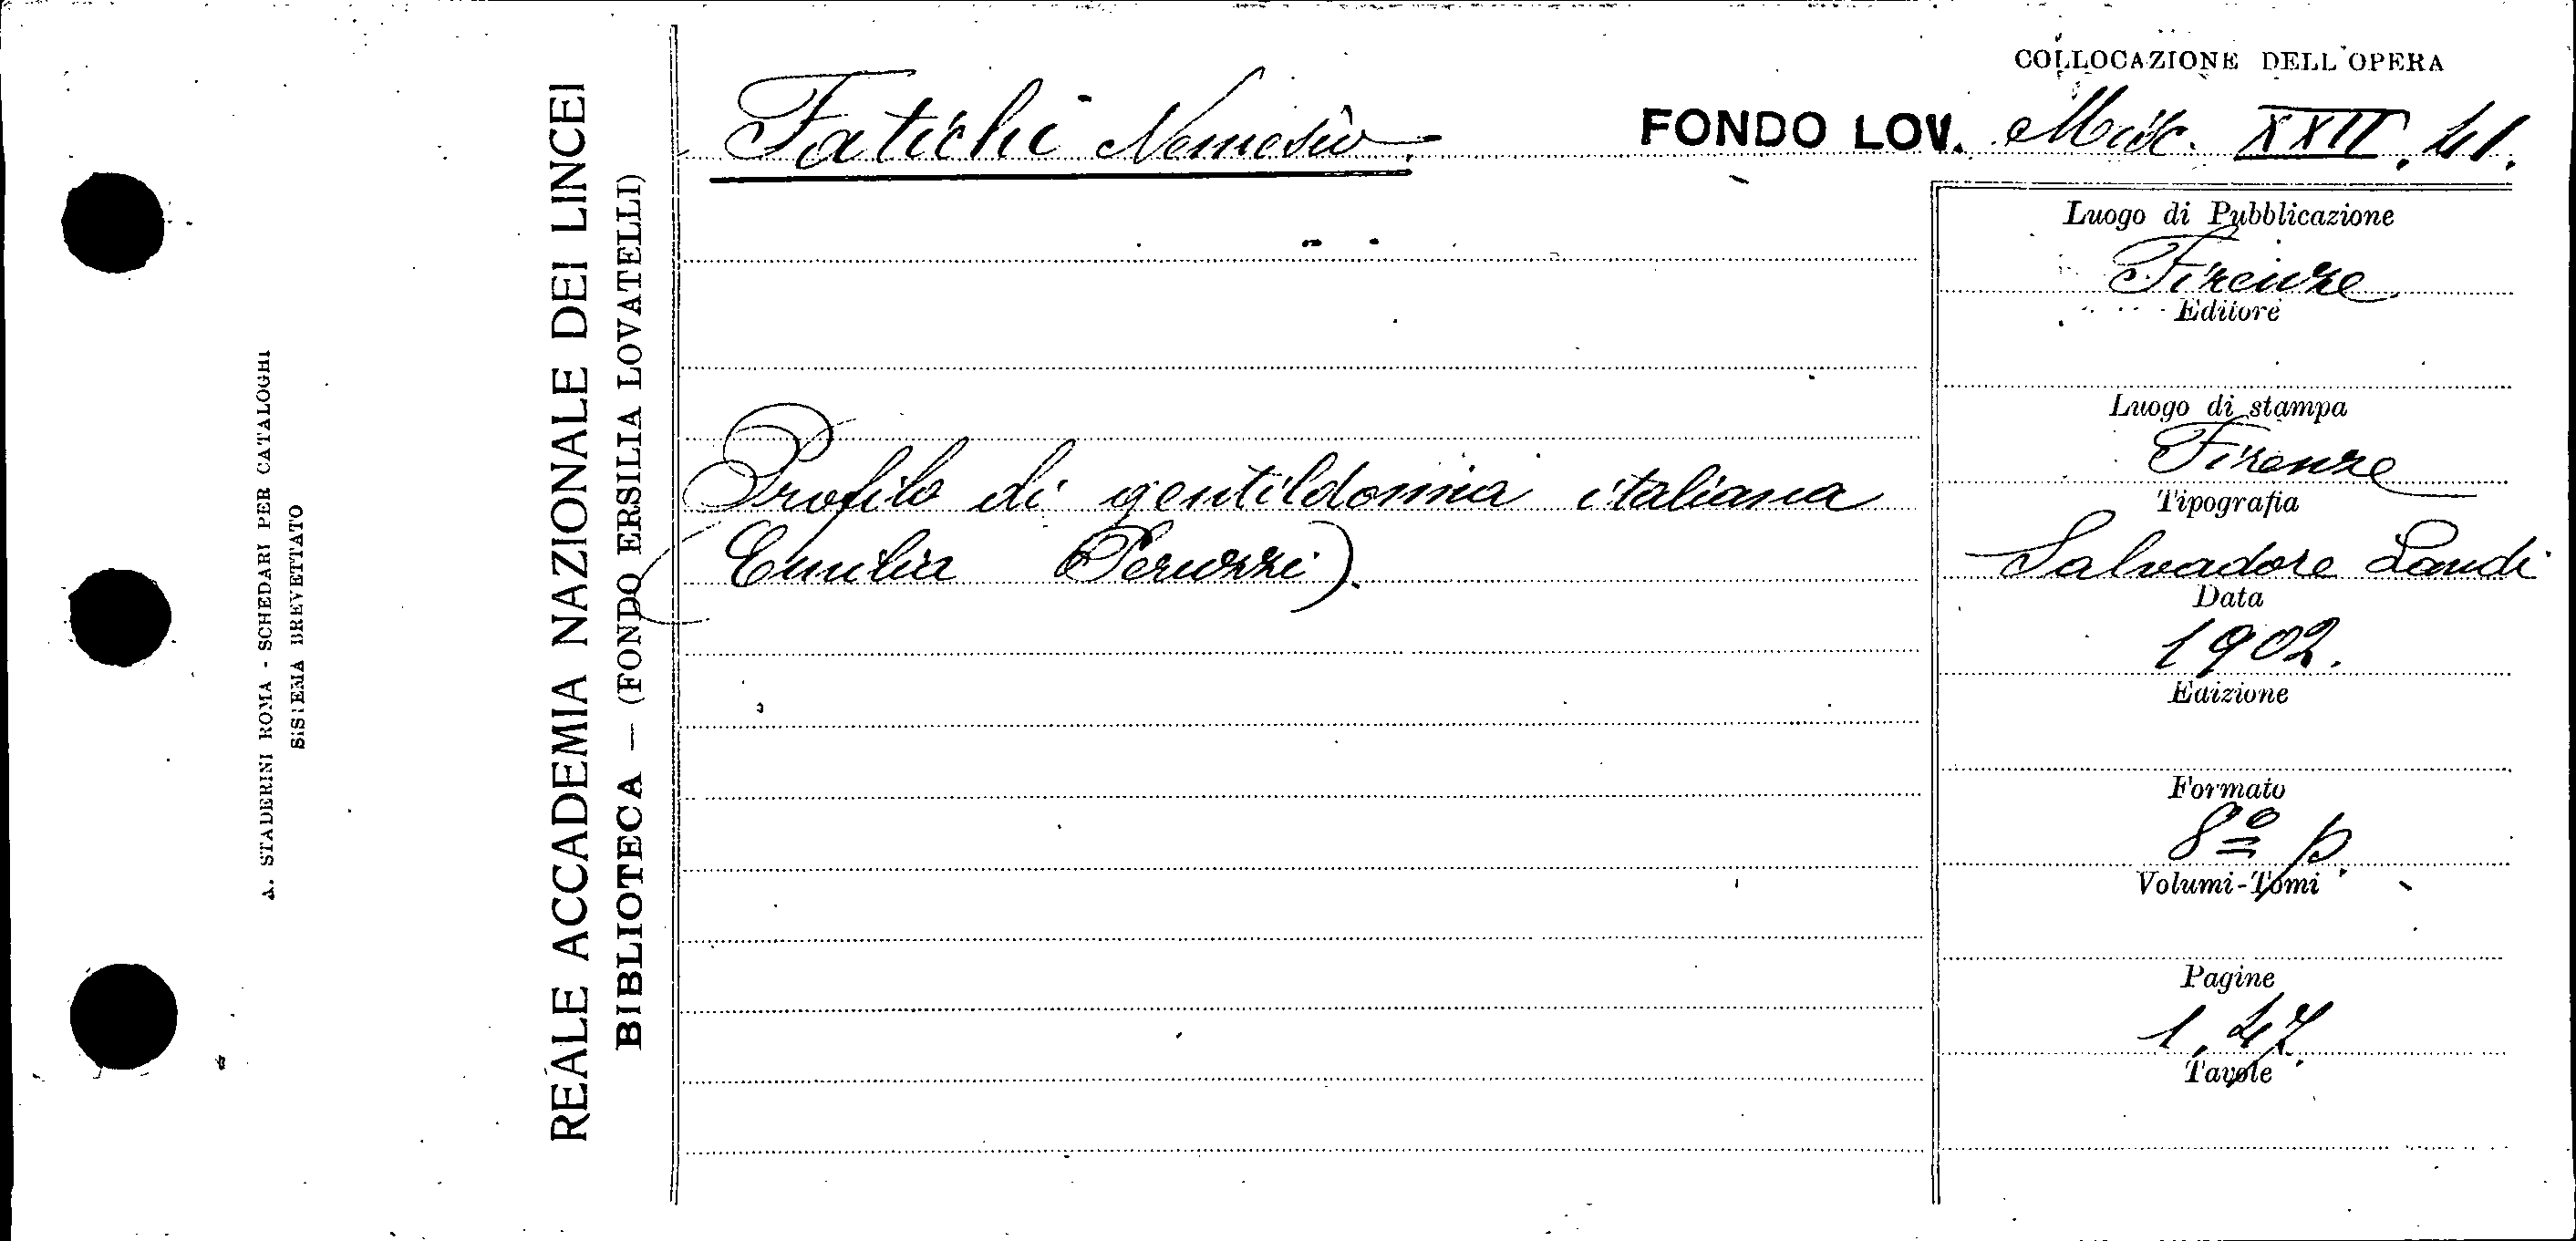 A. STADERINI ROMA - SCHEDARI PER CATALOGHI
SISTEMA BREVETTATO
REALE ACCADEMIA NAZIONALE DEI LINCEI
BIBLIOTECA — (FONDO ERSILIA LOVATELLI)
COLLOCAZIONE DELL'OPERA
Fatichi Nemesio.
FONDO LOV. Misc. XXII. 41.
Profilo di gentildonna italiana
(Emilia Peruzzi).
Luogo di Pubblicazione
Firenze
Editore
Luogo di stampa
Firenze
Tipografia
Salvadore Landi
Data
1902.
Edizione
Formato
8º p.
Volumi-Tomi
Pagine
1, 47.
Tavole